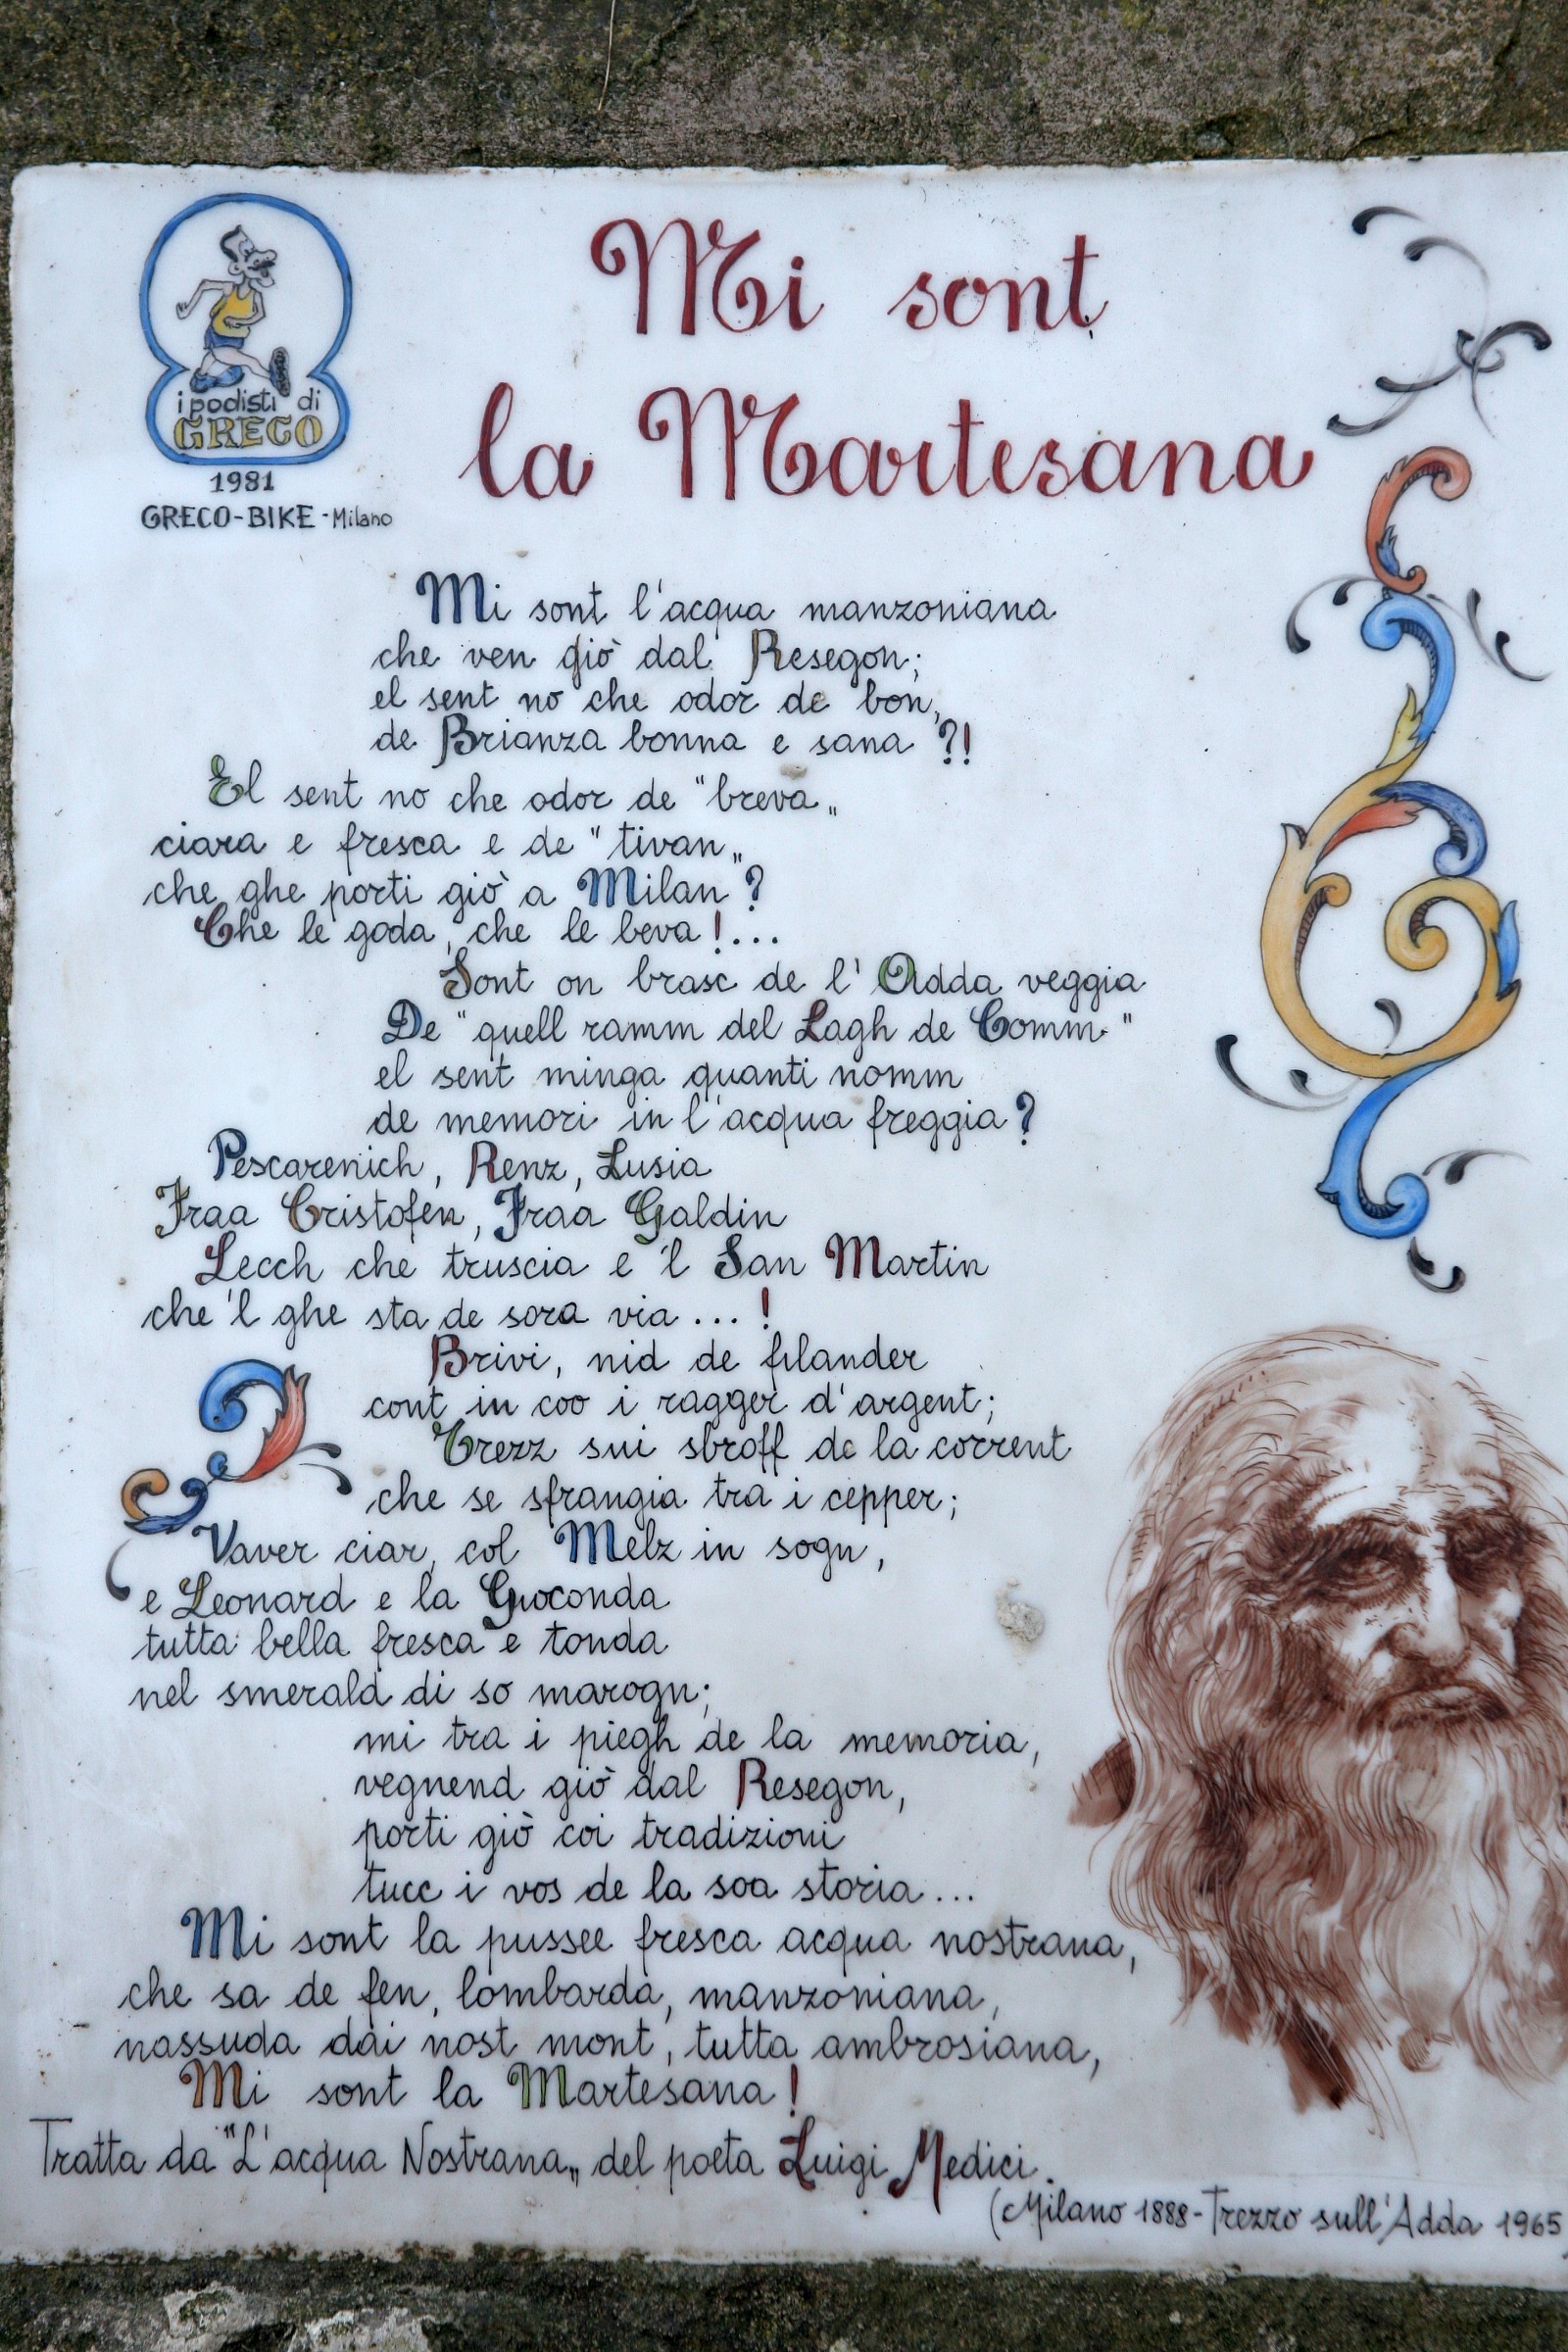 i podisti di
GRECO
1981
GRECO-BIKE-Milano
Mi sont
la Martesana
Mi sont l'acqua manzoniana
che ven giò dal Resegon;
el sent no che odor de bon,
de Brianza bonna e sana ?!
El sent no che odor de "breva„
ciara e fresca e de "tivan„
che ghe porti giò a Milan?
Che le goda, che le beva!...
Sont on brasc de l'Adda veggia
De "quell ramm del Lagh de Comm"
el sent minga quanti nomm
de memori in l'acqua freggia?
Pescarenich, Renz, Lusia
Fraa Cristofen, Fraa Galdin
Lecch che truscia e 'l San Martin
che 'l ghe sta de sora via...!
Brivi, nid de filander
cont in coo i ragger d'argent;
Trezz sui sbroff de la corrent
che se sfrangia tra i cepper;
Vaver ciar, col Melz in sogn,
e Leonard e la Gioconda
tutta bella fresca e tonda
nel smerald di so marogn;
mi tra i piegh de la memoria,
vegnend giò dal Resegon,
porti giò coi tradizioni
tucc i vos de la soa storia...
Mi sont la pussee fresca acqua nostrana,
che sa de fen, lombarda, manzoniana,
nassuda dai nost mont, tutta ambrosiana,
Mi sont la Martesana!
Tratta da "L'acqua Nostrana„ del poeta Luigi Medici.
(Milano 1888-Trezzo sull'Adda 1965